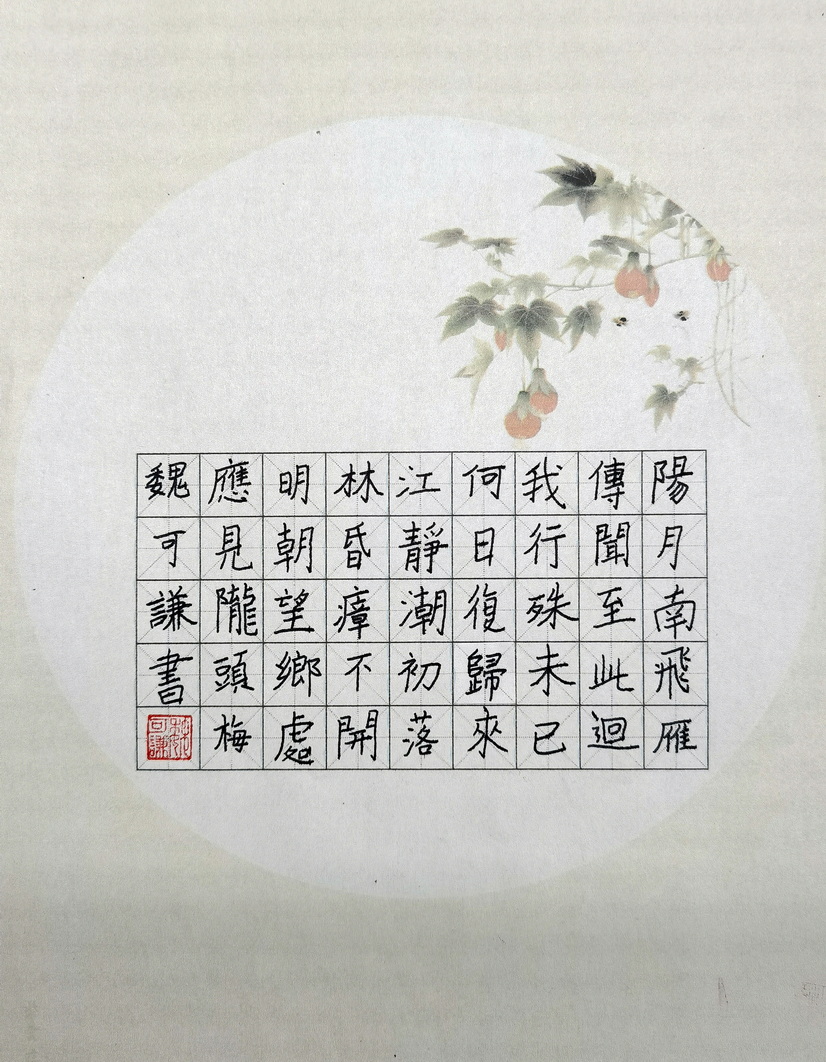 陽月南飛雁
傳聞至此迴
我行殊未已
何日復歸來
江靜潮初落
林昏瘴不開
明朝望鄉處
應見隴頭梅
魏可謙書
魏可謙